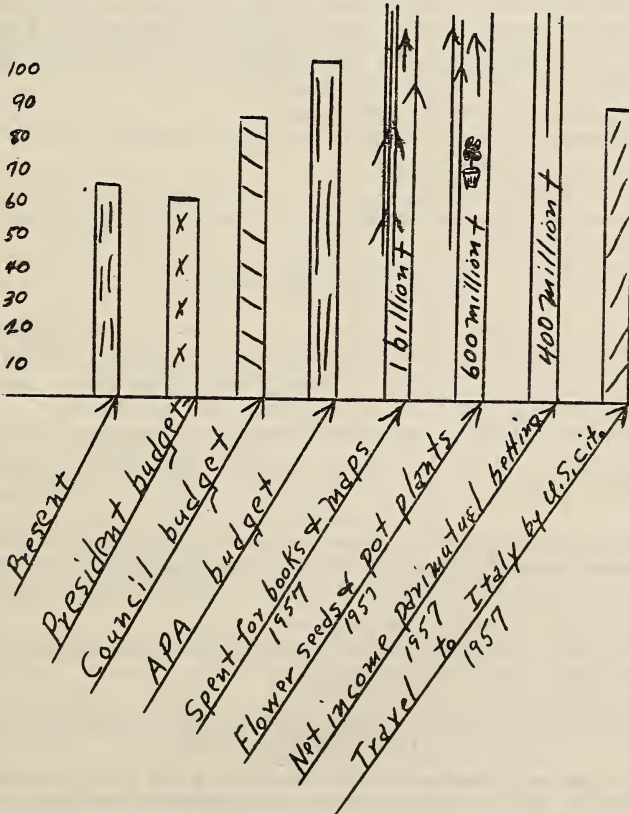 100
90
80
70
60
50
40
30
20
10
1 billion+
600 million+
400 million+
Present
President budget
Council budget
APA budget
Spent for books & maps
1957
Flower seeds & pot plants
1957
Net income parimutual betting
1957
Travel to Italy by U.S. cit.
1957